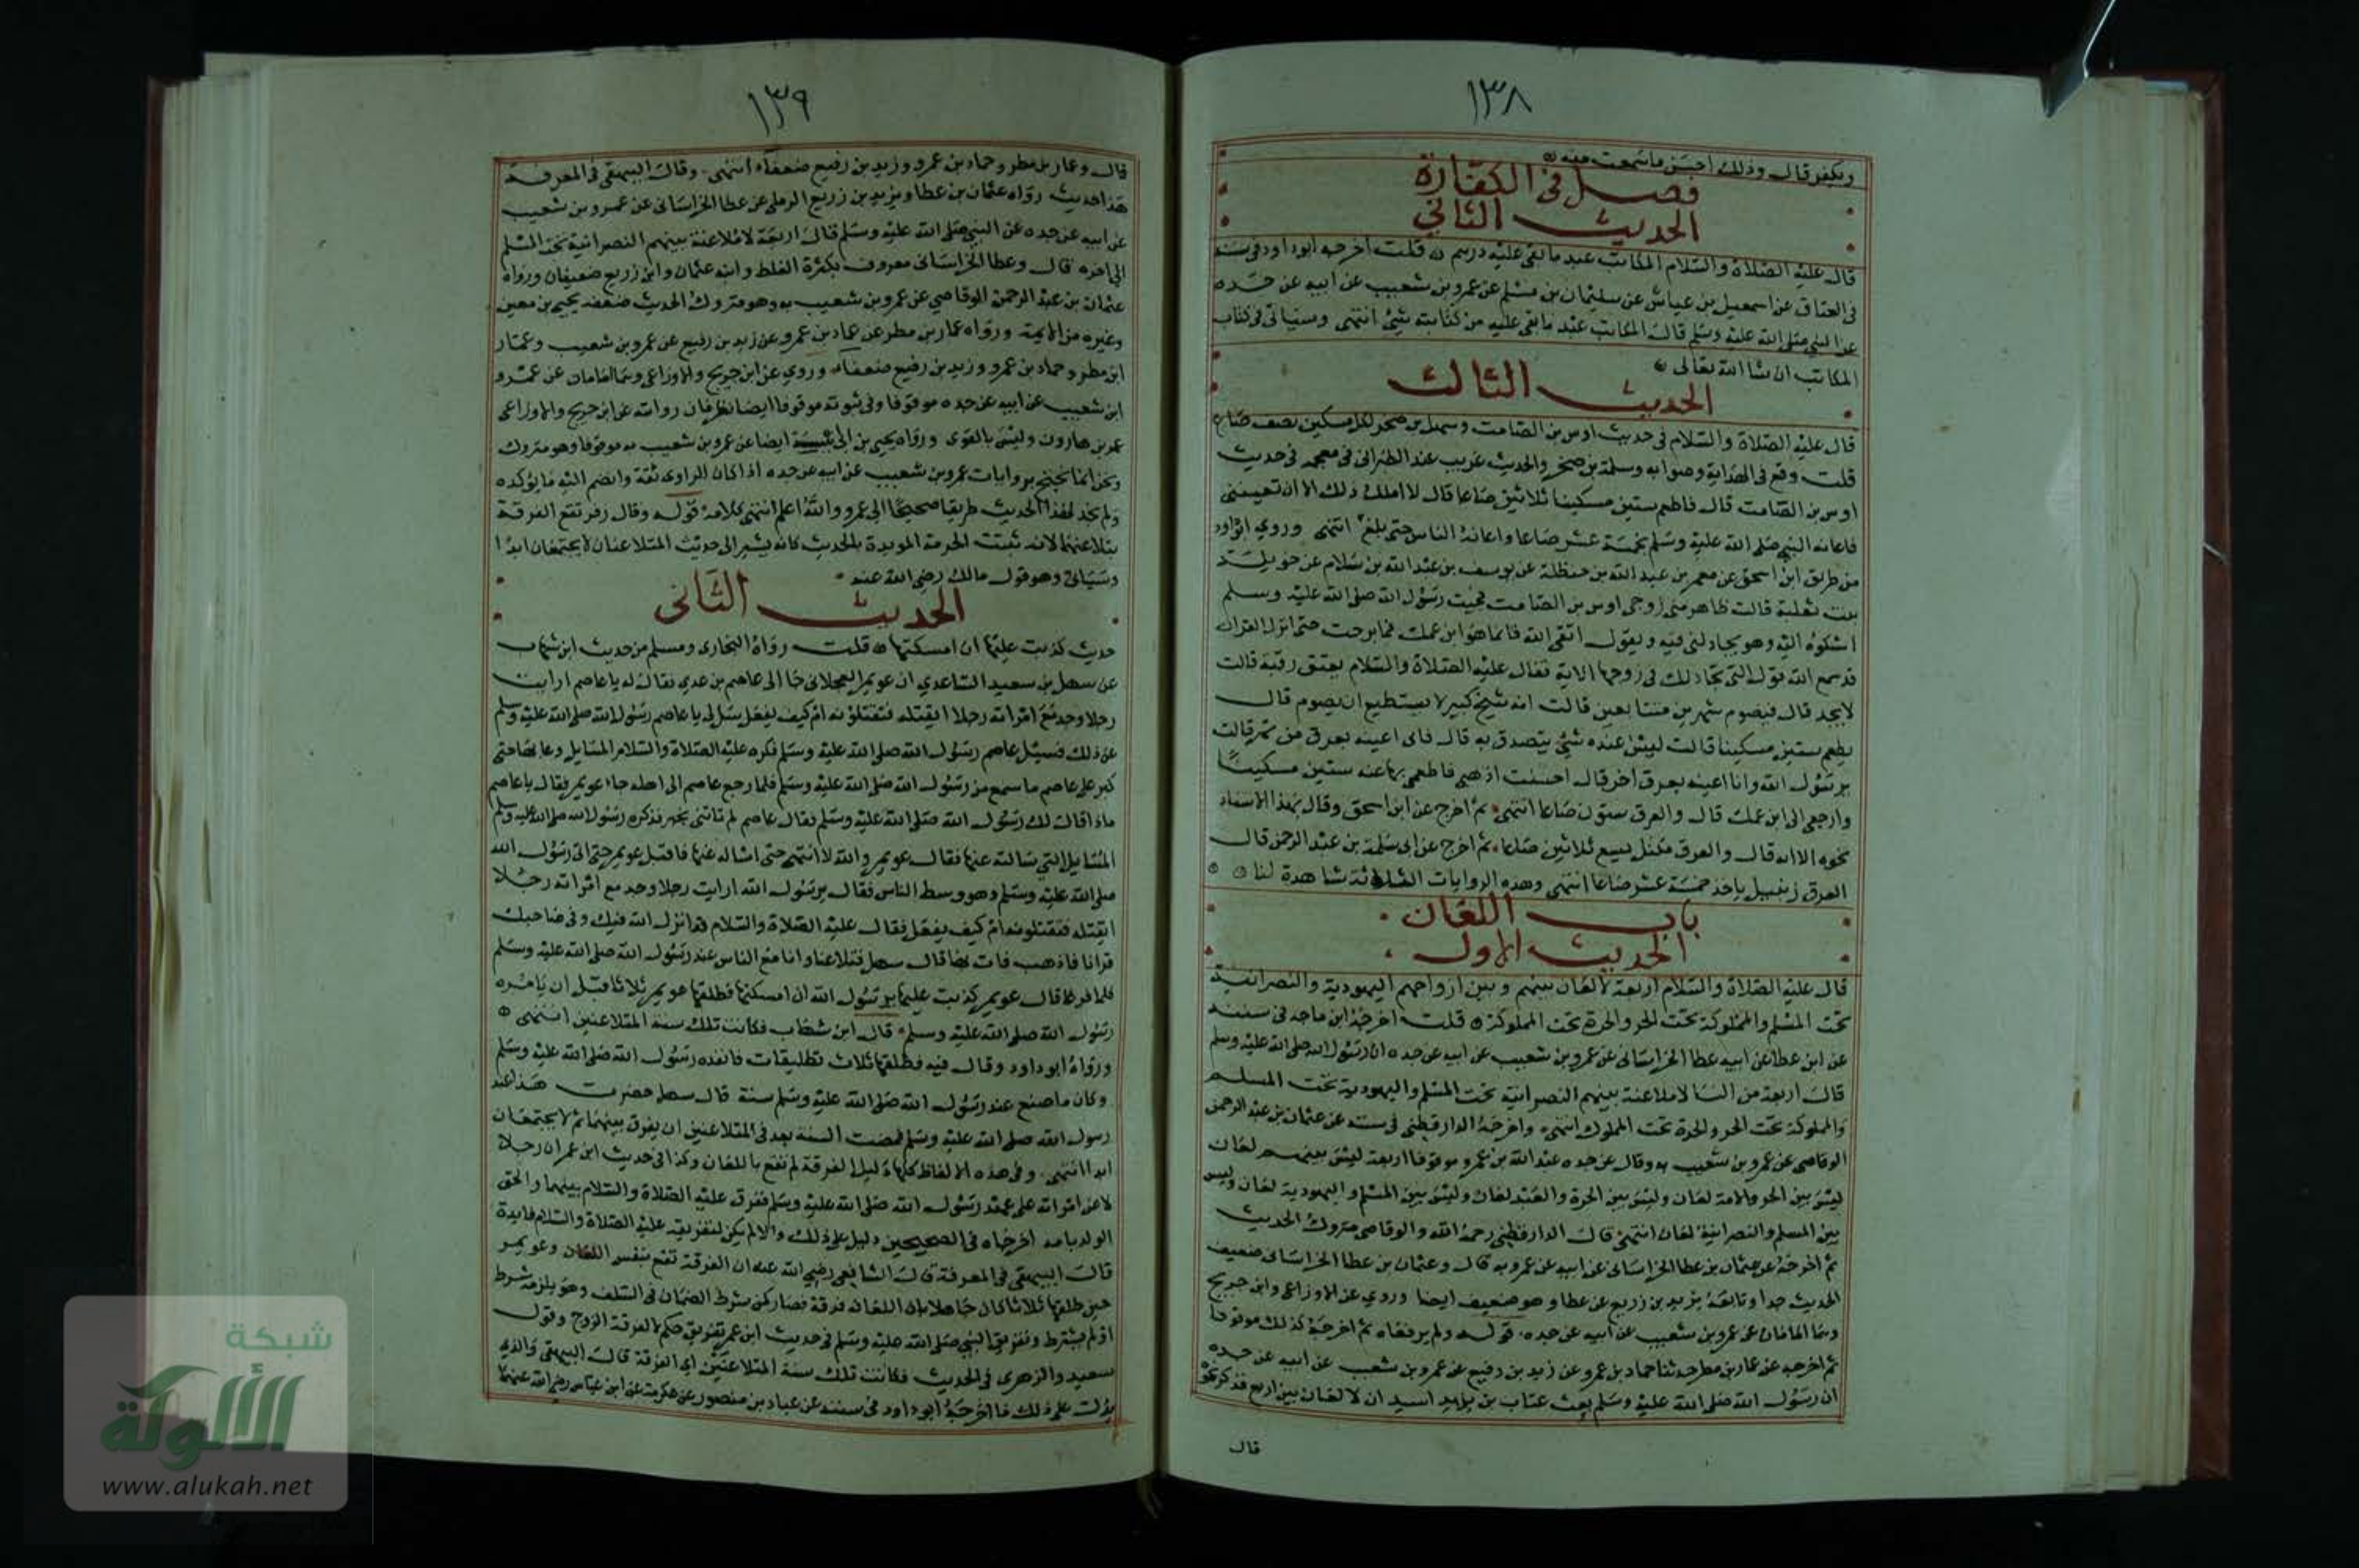 ١٣٨
ويكفر قال وذلك احسن ما سمعت منه
فصل في الكفارة
الحديث الثاني
قال عليه الصلاة والسلام المكاتب عبد ما بقي عليه درهم قلت اخرجه ابوداود في سننه
في العتاق عن اسمعيل بن عياش عن سليمان بن مسلم عن عمرو بن شعيب عن ابيه عن جده
عن النبي صلى الله عليه وسلم قال المكاتب عبد ما بقي عليه من كتابته شئ انتهى وسياتي في كتاب
المكاتب ان شا الله تعالى
الحديث الثالث
قال عليه الصلاة والسلام في حديث اوس بن الصامت وسهل بن صخر لكل مسكين نصف صاع
قلت وقع في الهداية وصوابه وسلمة بن صخر والحديث غريب عند الطبراني في معجمه في حديث
اوس بن الصامت قال فاطعم ستين مسكينا ثلاثين صاعا قال لا املك ذلك الا ان تعينني
فاعانه النبي صلى الله عليه وسلم بخمسة عشر صاعا واعانه الناس حتى بلغ انتهى وروي ابوداود
من طريق ابن اسحق عن معمر بن عبد الله بن حنظلة عن يوسف بن عبد الله بن سلام عن خويلة
بنت ثعلبة قالت ظاهر مني زوجي اوس بن الصامت فجيت رسول الله صلى الله عليه وسلم
اشكوه اليه وهو يجادلني فيه ويقول اتقي الله فانما هو ابن عمك فما برحت حتى انزل القران
قد سمع الله قول التي تجادلك في زوجها الاية فقال عليه الصلاة والسلام يعتق رقبة قالت
لا يجد قال فيصوم شهرين متتابعين قالت انه شيخ كبير لا يستطيع ان يصوم قال
يطعم ستين مسكينا قالت ليس عنده شئ يتصدق به قال فاني اعينه بعرق من تمر قالت
يرسول الله وانا اعينه بعرق اخر قال احسنت اذهبي فاطعمي بها عنه ستين مسكينا
وارجعي الى ابن عمك قال والعرق ستون صاعا انتهى ثم اخرج عن ابن اسحق وقال بهذا الاسناد
نحوه الا انه قال والعرق مكتل يسع ثلاثين صاعا ثم اخرج عن ابي سلمة بن عبد الرحمن قال
العرق زنبيل ياخذ خمسة عشر صاعا انتهى وهذه الروايات الثلاثة شاهدة لنا
باب اللعان
الحديث الاول
قال عليه الصلاة والسلام اربعة لا لعان بينهم وبين ازواجهم اليهودية والنصرانية
تحت المسلم والمملوكة تحت الحر والحرة تحت المملوكة قلت اخرجه ابن ماجه في سننه
عن ابن عطا عن ابيه عطا الخراساني عن عمرو بن شعيب عن ابيه عن جده ان رسول الله صلى الله عليه وسلم
قال اربعة من النسا لا ملاعنة بينهم النصرانية تحت المسلم واليهودية تحت المسلم
والمملوكة تحت الحر والحرة تحت المملوك انتهى واخرجه الدارقطني في سننه عن عثمان بن عبد الرحمن
الوقاصي عن عمرو بن شعيب به وقال عن جده عبد الله بن عمرو موقوفا اربعة ليس بينهم لعان
ليس بين الحر والامة لعان وليس بين الحرة والعبد لعان وليس بين المسلم واليهودية لعان وليس
بين المسلم والنصرانية لعان انتهى قال الدارقطني رحمه الله والوقاصي متروك الحديث
ثم اخرجه عن عثمان بن عطا الخراساني عن ابيه عن عمرو به قال وعثمان بن عطا الخراساني ضعيف
الحديث جدا وتابعه يزيد بن زريع عن عطا وهو ضعيف ايضا وروي عن الاوزاعي وابن جريج
وهما امامان عن عمرو بن شعيب عن ابيه عن جده قوله ولم يرفعاه ثم اخرجه كذلك موقوفا
ثم اخرجه عن عمار بن مطر حدثنا حماد بن عمرو عن زيد بن رفيع عن عمرو بن شعيب عن ابيه عن جده
ان رسول الله صلى الله عليه وسلم بعث عتاب بن اسيد ان لا لعان بين اربع فذكر نحوه
قال
١٣٩
قال وعمار بن مطر وحماد بن عمرو وزيد بن رفيع ضعفاء انتهى وقال البيهقي في المعرفة
هذا حديث رواه عثمان بن عطا ويزيد بن زريع الرملي عن عطا الخراساني عن عمرو بن شعيب
عن ابيه عن جده عن النبي صلى الله عليه وسلم قال اربعة لا ملاعنة بينهم النصرانية تحت المسلم
الى اخره قال وعطا الخراساني معروف بكثرة الغلط وابنه عثمان وابن زريع ضعيفان ورواه
عثمان بن عبد الرحمن الوقاصي عن عمرو بن شعيب به وهو متروك الحديث ضعفه يحيى بن معين
وغيره من الايمة ورواه عمار بن مطر عن حماد بن عمرو عن زيد بن رفيع عن عمرو بن شعيب وعمار
ابن مطر وحماد بن عمرو وزيد بن رفيع ضعفاء وروي عن ابن جريج والاوزاعي وهما امامان عن عمرو
ابن شعيب عن ابيه عن جده موقوفا وفي ثبوته موقوفا ايضا نظر فان روايته عن ابن جريج والاوزاعي
عمر بن هارون وليس بالقوي ورواه يحيى بن ابي انيسة ايضا عن عمرو بن شعيب به موقوفا وهو متروك
ونحن انما نحتج بروايات عمرو بن شعيب عن ابيه عن جده اذا كان الراوي ثقة وانضم اليه ما يؤكده
ولم نجد لهذا الحديث طريقا صحيحا الى عمرو والله اعلم انتهى كلامه قوله وقال زفر تقع الفرقة
بتلاعنهما لانه ثبتت الحرمة المويدة بالحديث كانه يشير الى حديث المتلاعنان لا يجتمعان ابدا
وسياتي وهو قول مالك رضي الله عنه
الحديث الثاني
حديث كذبت عليها ان امسكتها قلت رواه البخاري ومسلم من حديث ابن شهاب
عن سهل بن سعيد الساعدي ان عويمر العجلاني جا الى عاصم بن عدي فقال له يا عاصم ارايت
رجلا وجد مع امراته رجلا ايقتله فتقتلونه ام كيف يفعل سل لي يا عاصم رسول الله صلى الله عليه وسلم
عن ذلك فسيل عاصم رسول الله صلى الله عليه وسلم فكره عليه الصلاة والسلام المسايل وعابها حتى
كبر على عاصم ما سمع من رسول الله صلى الله عليه وسلم فلما رجع عاصم الى اهله جاء عويمر فقال يا عاصم
ماذا قال لك رسول الله صلى الله عليه وسلم فقال عاصم لم تاتني بخير قد كره رسول الله صلى الله عليه وسلم
المسايل التي سالته عنها فقال عويمر والله لا انتهى حتى اساله عنها فاقبل عويمر حتى اتى رسول الله
صلى الله عليه وسلم وهو وسط الناس فقال يرسول الله ارايت رجلا وجد مع امراته رجلا
ايقتله فتقتلونه ام كيف يفعل فقال عليه الصلاة والسلام قد انزل الله فيك وفي صاحبك
قرانا فاذهب فات بها قال سهل فتلاعنا وانا مع الناس عند رسول الله صلى الله عليه وسلم
فلما فرغا قال عويمر كذبت عليها يرسول الله ان امسكتها فطلقها عويمر ثلاثا قبل ان يامره
رسول الله صلى الله عليه وسلم قال ابن شهاب فكانت تلك سنة المتلاعنين انتهى
ورواه ابو داود وقال فيه فطلقها ثلاث تطليقات فانفذه رسول الله صلى الله عليه وسلم
وكان ما صنع عند رسول الله صلى الله عليه وسلم سنة قال سهل حضرت هذا عند
رسول الله صلى الله عليه وسلم فمضت السنة بعد في المتلاعنين ان يفرق بينهما ثم لا يجتمعان
ابدا انتهى وفي هذه الالفاظ كلها دليل الفرقة لم تقع باللعان وكذا في حديث ابن عمر ان رجلا
لاعن امراته على عهد رسول الله صلى الله عليه وسلم ففرق عليه الصلاة والسلام بينهما والحق
الولد بامه اخرجاه في الصحيحين دليل على ذلك والا لم يكن لتفريقه عليه الصلاة والسلام فايدة
قال البيهقي في المعرفة قال الشافعي رضي الله عنه ان الفرقة تقع بنفس اللعان وعويمر
حين طلقها ثلاثا كان جاهلا بان اللعان فرقة فصار كمن شرط الضمان في السلف وهو يلزمه شرط
او لم يشترط وتفريق النبي صلى الله عليه وسلم في حديث ابن عمر تفريق حكم لا لفرقة الزوج وقول
سعيد والزهري في الحديث فكانت تلك سنة المتلاعنين اي الفرقة قال البيهقي والذي
يدل على ذلك ما اخرجه ابو داود في سننه عن عباد بن منصور عن عكرمة عن ابن عباس رضي الله عنهما
شبكة
الألوكة
www.alukah.net